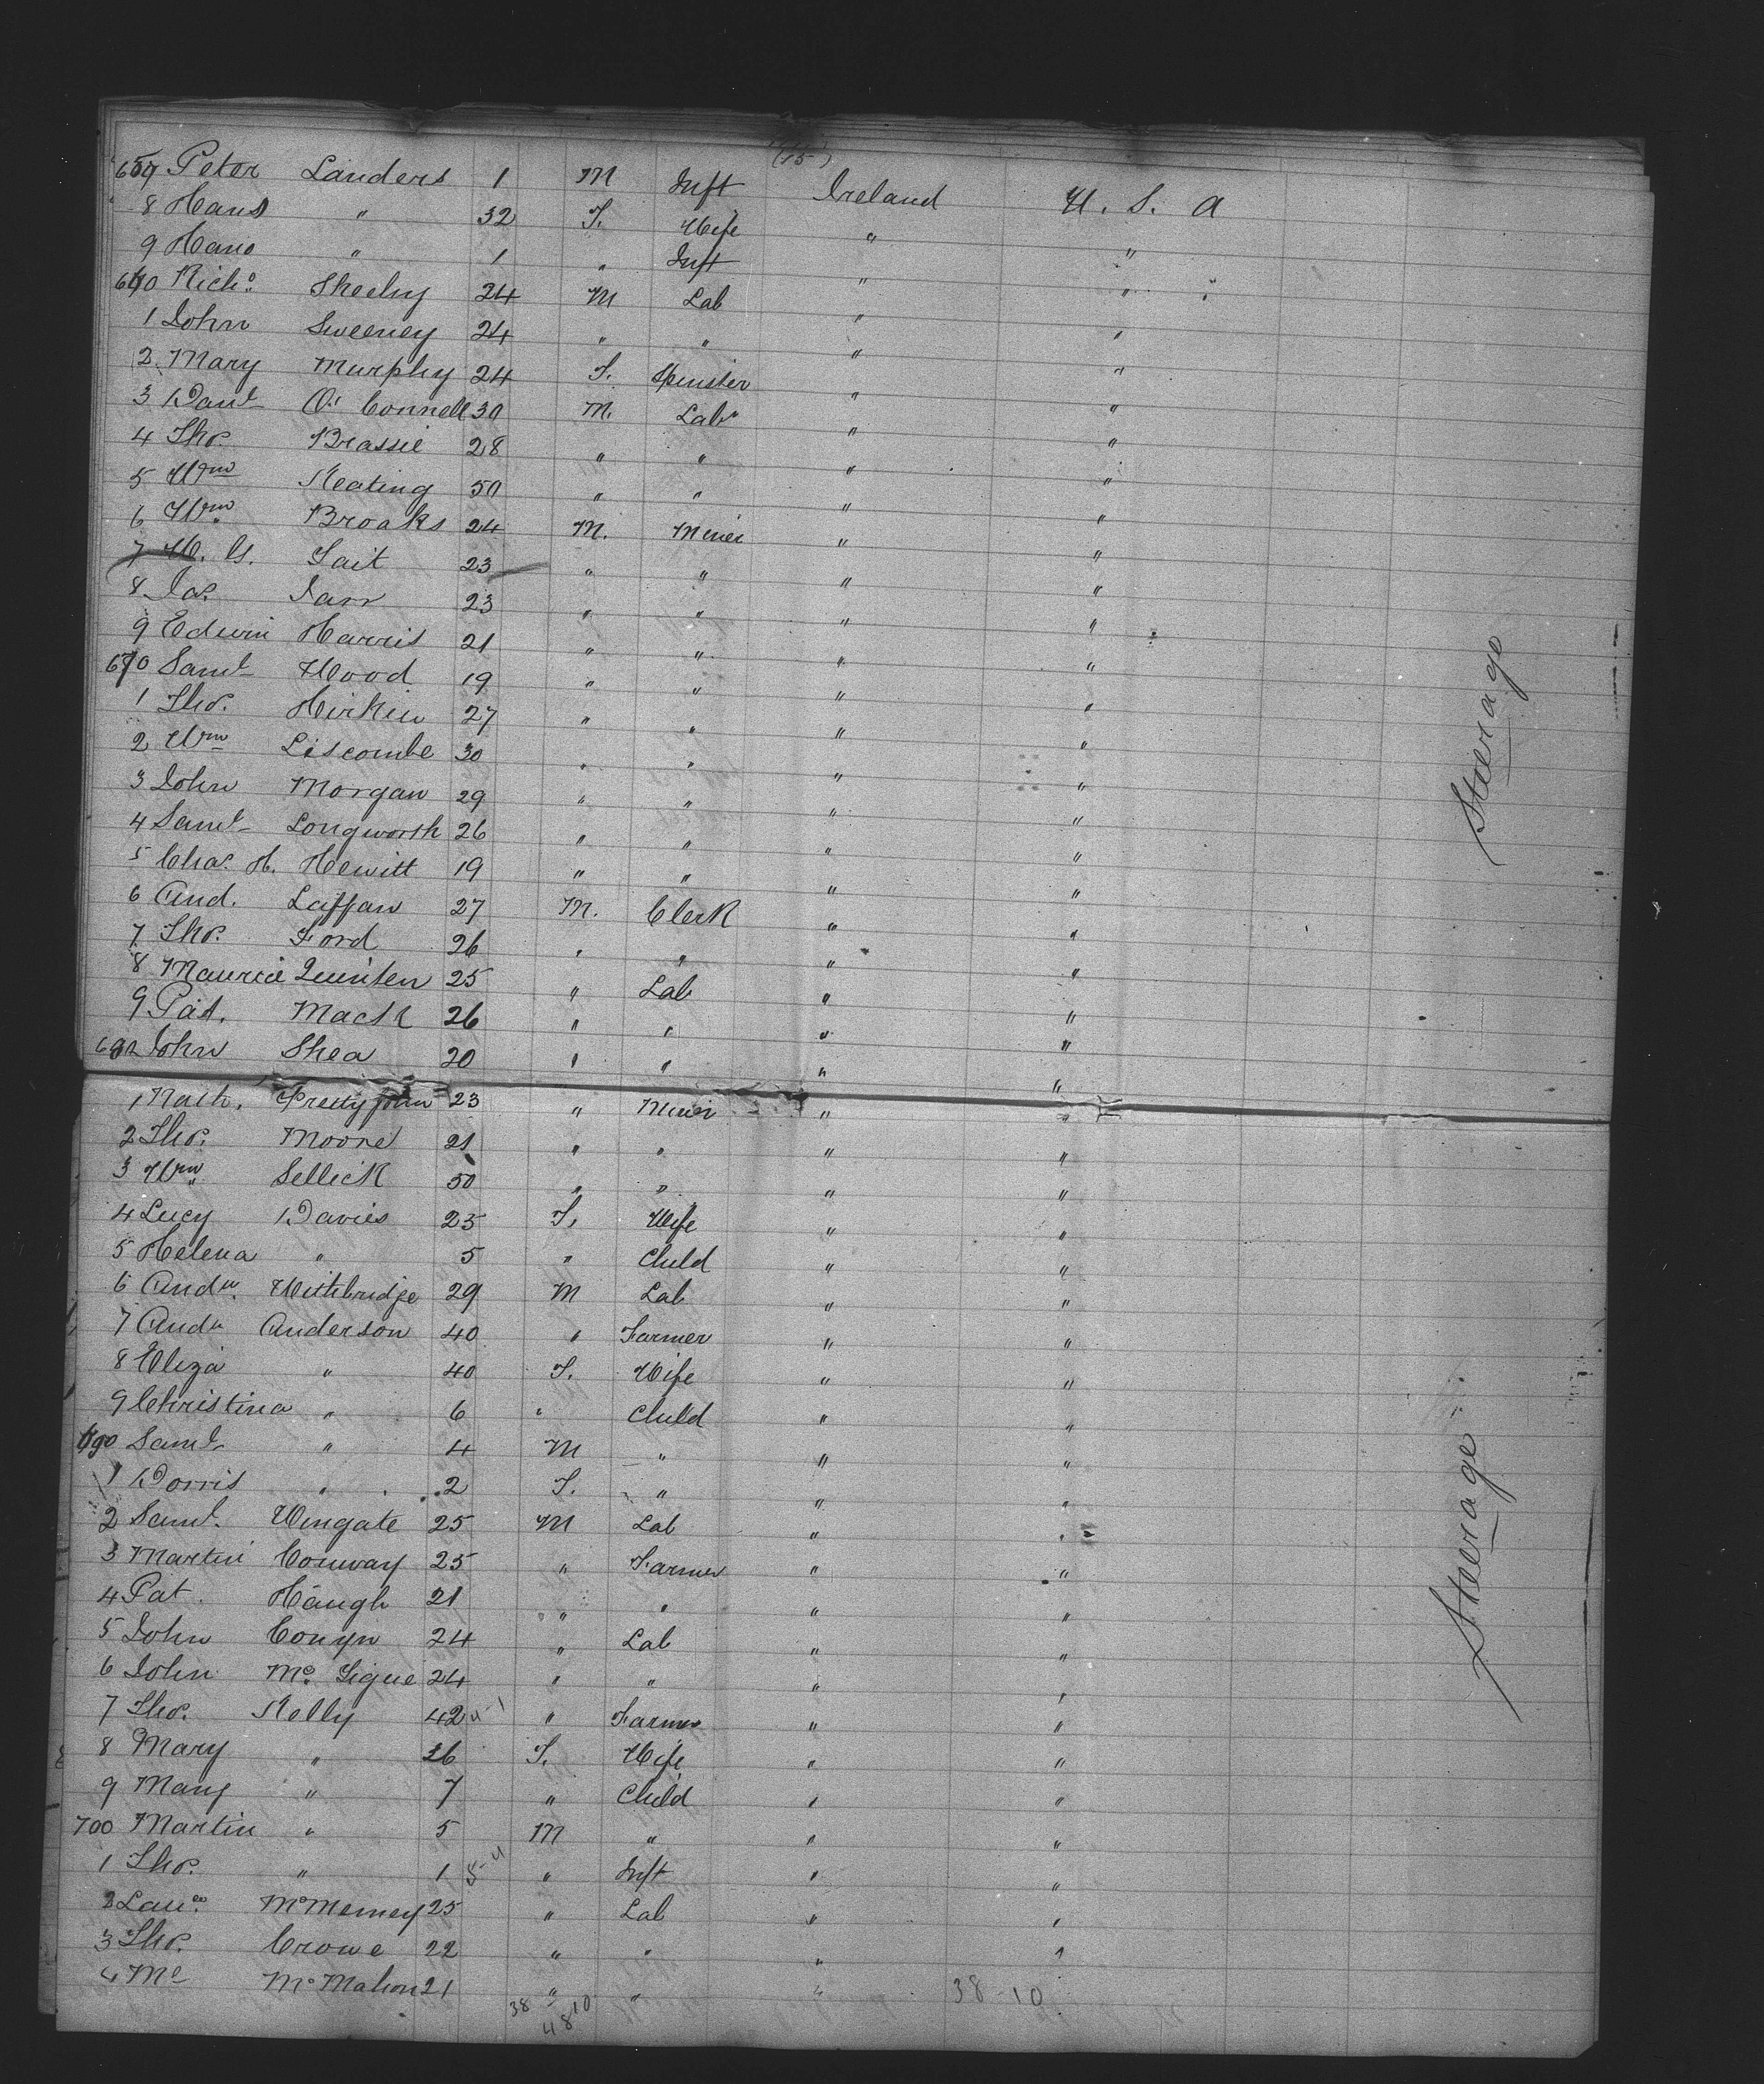 (15)
657 Peter Landers 1 M Inft Ireland U. S. A
8 Hans " 32 F. Wife " "
9 Hano " 1 " Inft " "
660 Richd. Sheehy 24 M Lab " "
1 John Sweeney 24 " " " "
2 Mary Murphy 24 F. Spinster " "
3 Danl O' Connell 30 M. Labr " "
4 Thos. Brassie 28 " " " "
5 Wm Keating 50 " " " "
6 Wm. Broaks 24 M. Miner " "
7 W. G. Tait 23 " " " "
8 Jas. Jarr 23 " " " "
9 Edwin Harris 21 " " " "
670 Saml Wood 19 " " " "
1 Thos. Hirkin 27 " " " "
2 Wm Liscombe 30 " " " "
3 John Morgan 29 " " " "
4 Saml Longworth 26 " " " "
5 Chas. H. Hewitt 19 " " " "
6 And. Laffan 27 M. Clerk " "
7 Thos. Ford 26 " " " "
8 Maurice Quinten 25 " Lab " "
9 Pat. Mack 26 " " " "
680 John Shea 20 " " " "
Steerage
1 Nath. Prettyjohn 23 " Miner " "
2 Thos. Moore 21 " " " "
3 Wm Sellick 50 " " " "
4 Lucy Davies 25 F. Wife " "
5 Helena " 5 " Child " "
6 Andw. Withbridge 29 M Lab " "
7 Andw Anderson 40 " Farmer " "
8 Eliza " 40 F. Wife " "
9 Christina " 6 " Child " "
690 Saml " 4 M " " "
1 Dorris " 2 F. " " "
2 Saml. Wingate 25 M Lab " "
3 Martin Conway 25 " Farmer " "
4 Pat. Haugh 21 " " " "
5 John Conyn 24 " Lab " "
6 John Mc. Tigue 24 " " " "
7 Thos. Kelly 42 " Farmer " "
8 Mary " 26 F. Wife " "
9 Mary " 7 " Child " "
700 Martin " 5 M " " "
1 Thos. " 1 " Inft " "
2 Lawce. McMerney 25 " Lab " "
3 Thos. Crowe 22 " " " "
4 Ml McMahon 21 " " "
Steerage
38 10 38-10
48